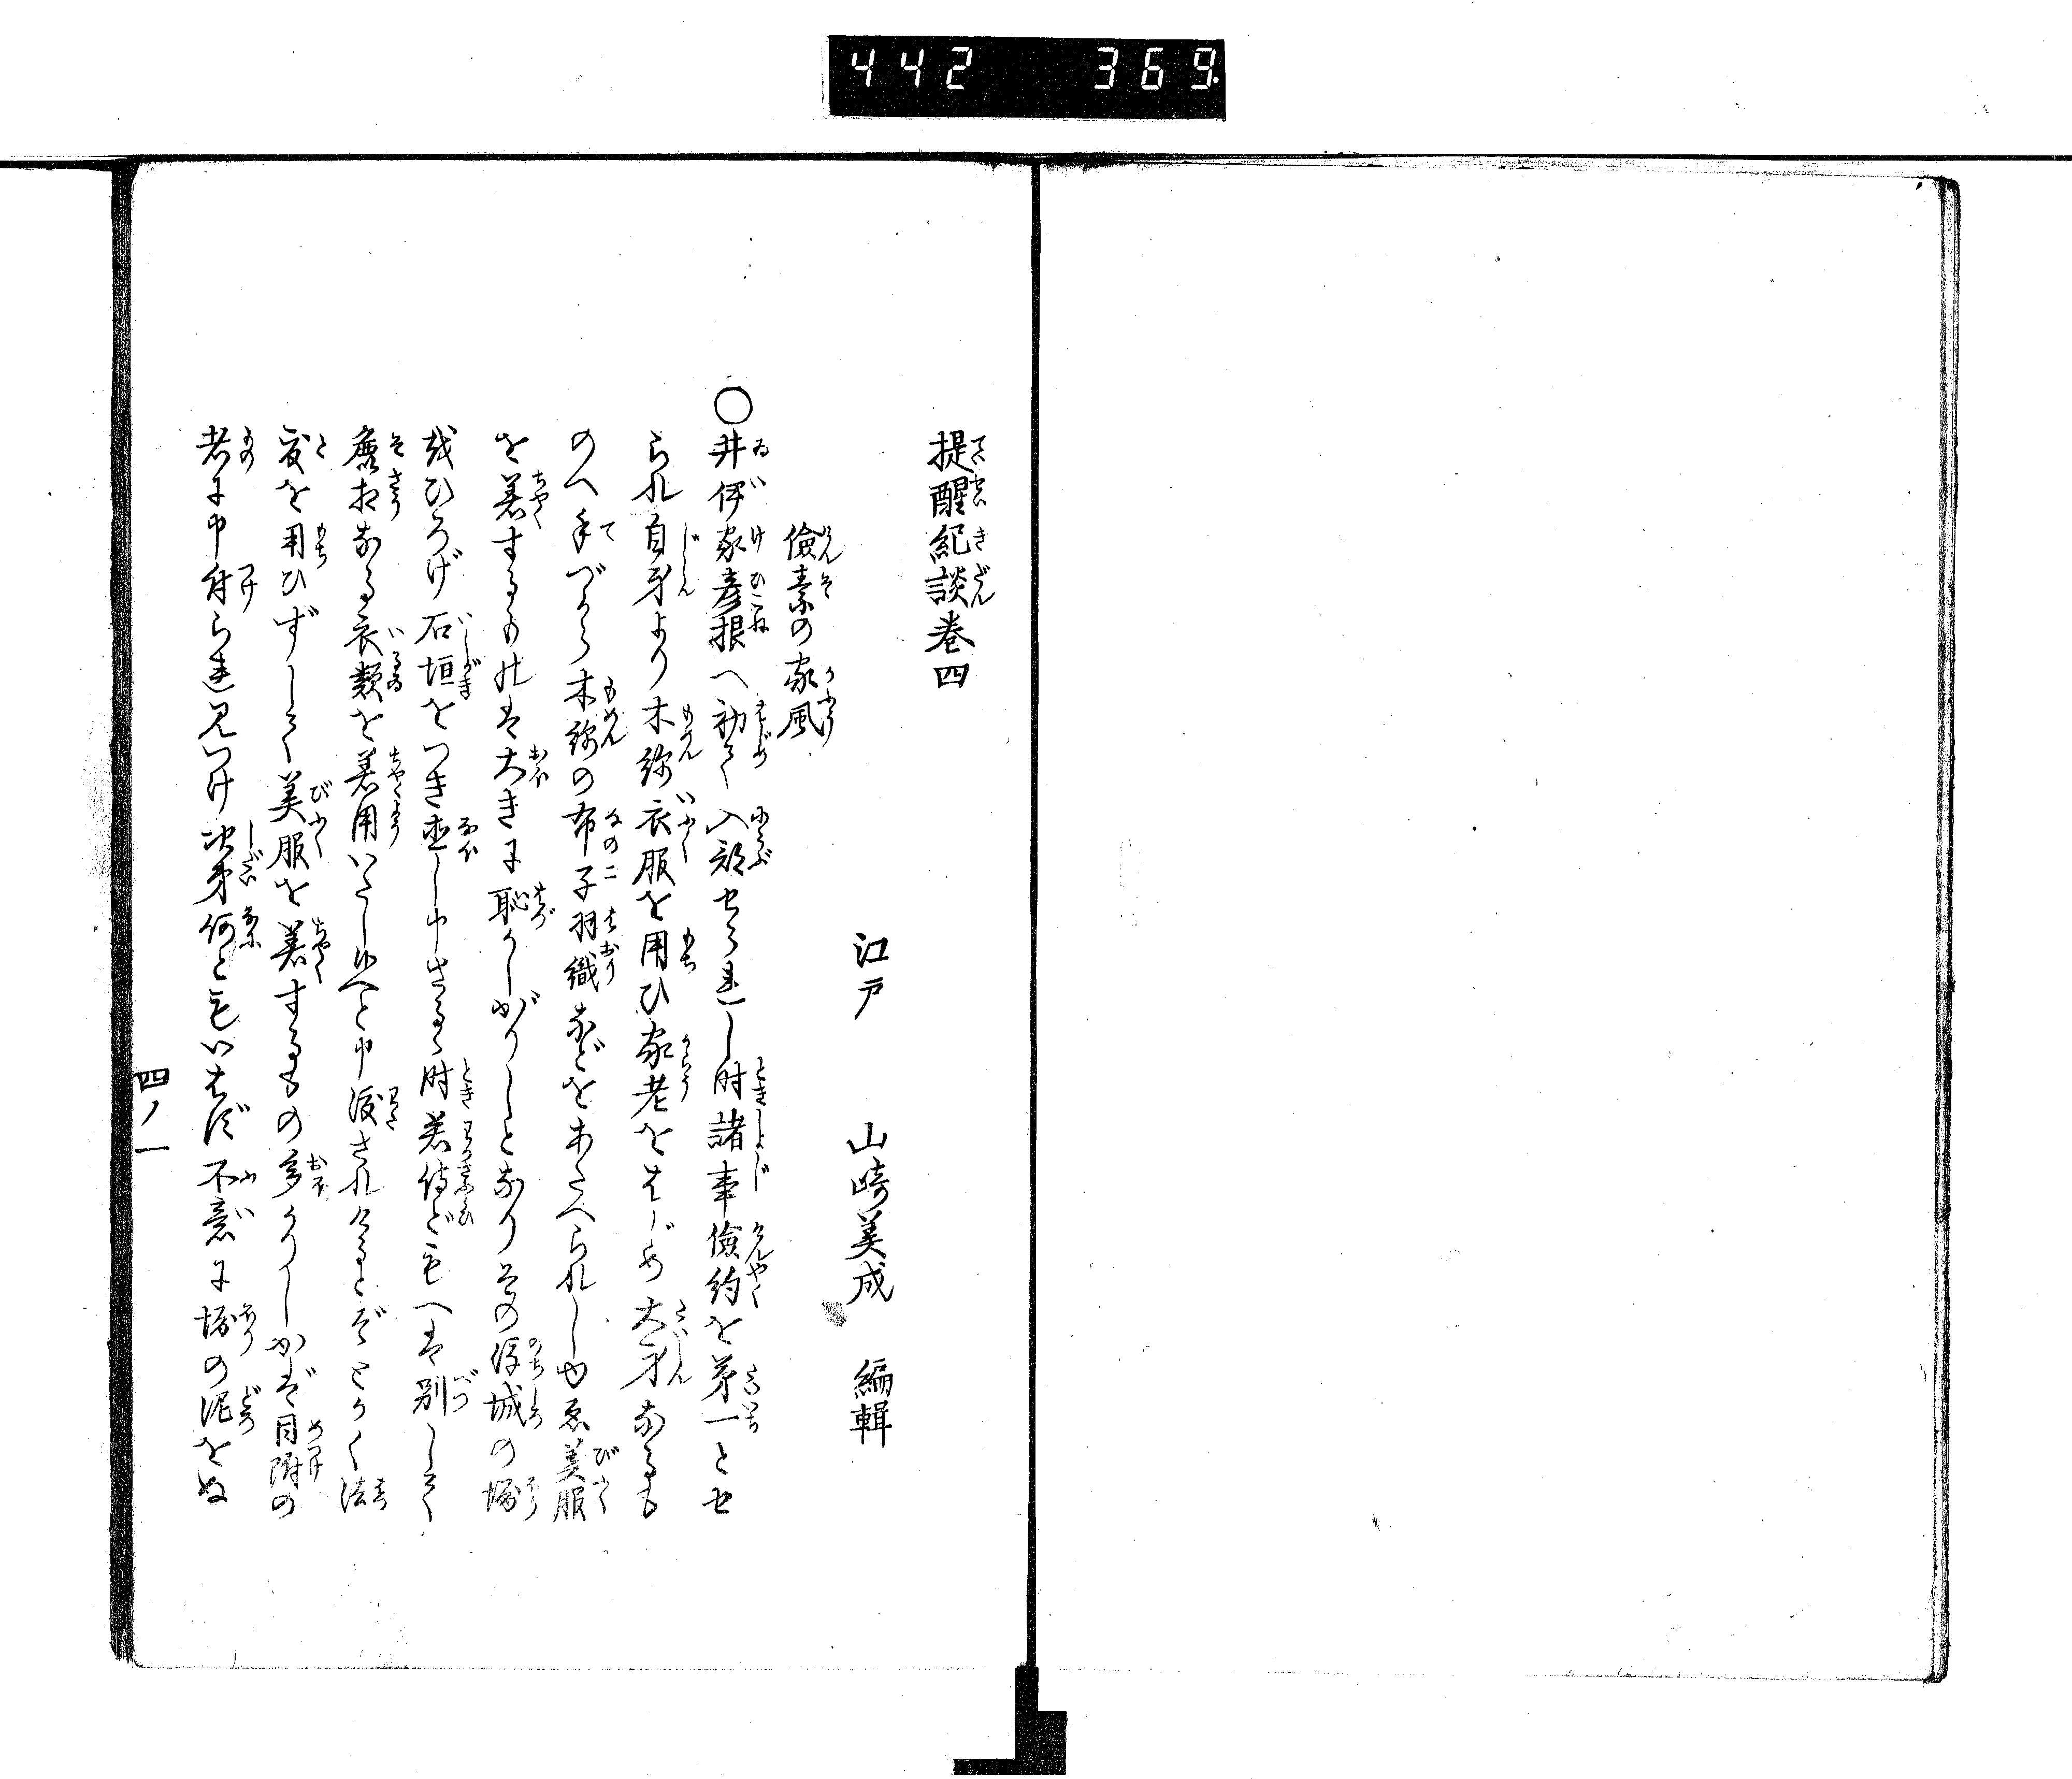 442 369
提醒紀談巻四
江戸 山崎美成 編輯
儉素の家風
○井伊家彦根へ初て入部せられし時諸事儉約を第一とせ
られ自身より木綿衣服を用ひ家老をはじめ大身なるも
のへ手づから木綿の布子羽織などをあたへられしゆゑ美服
を着するものは大きに恥かしがりしとなりその後城の堀
をひろげ石垣をつき直し申さるゝ時若侍どもへは別して
麁相なる衣類を着用いたし候へと申渡されけるとぞとかく法
度を用ひずして美服を着するもの多かりしかば目附の
者に申付られ見つけ次第何ともいはず不意に堀の泥をぬ
四ノ一